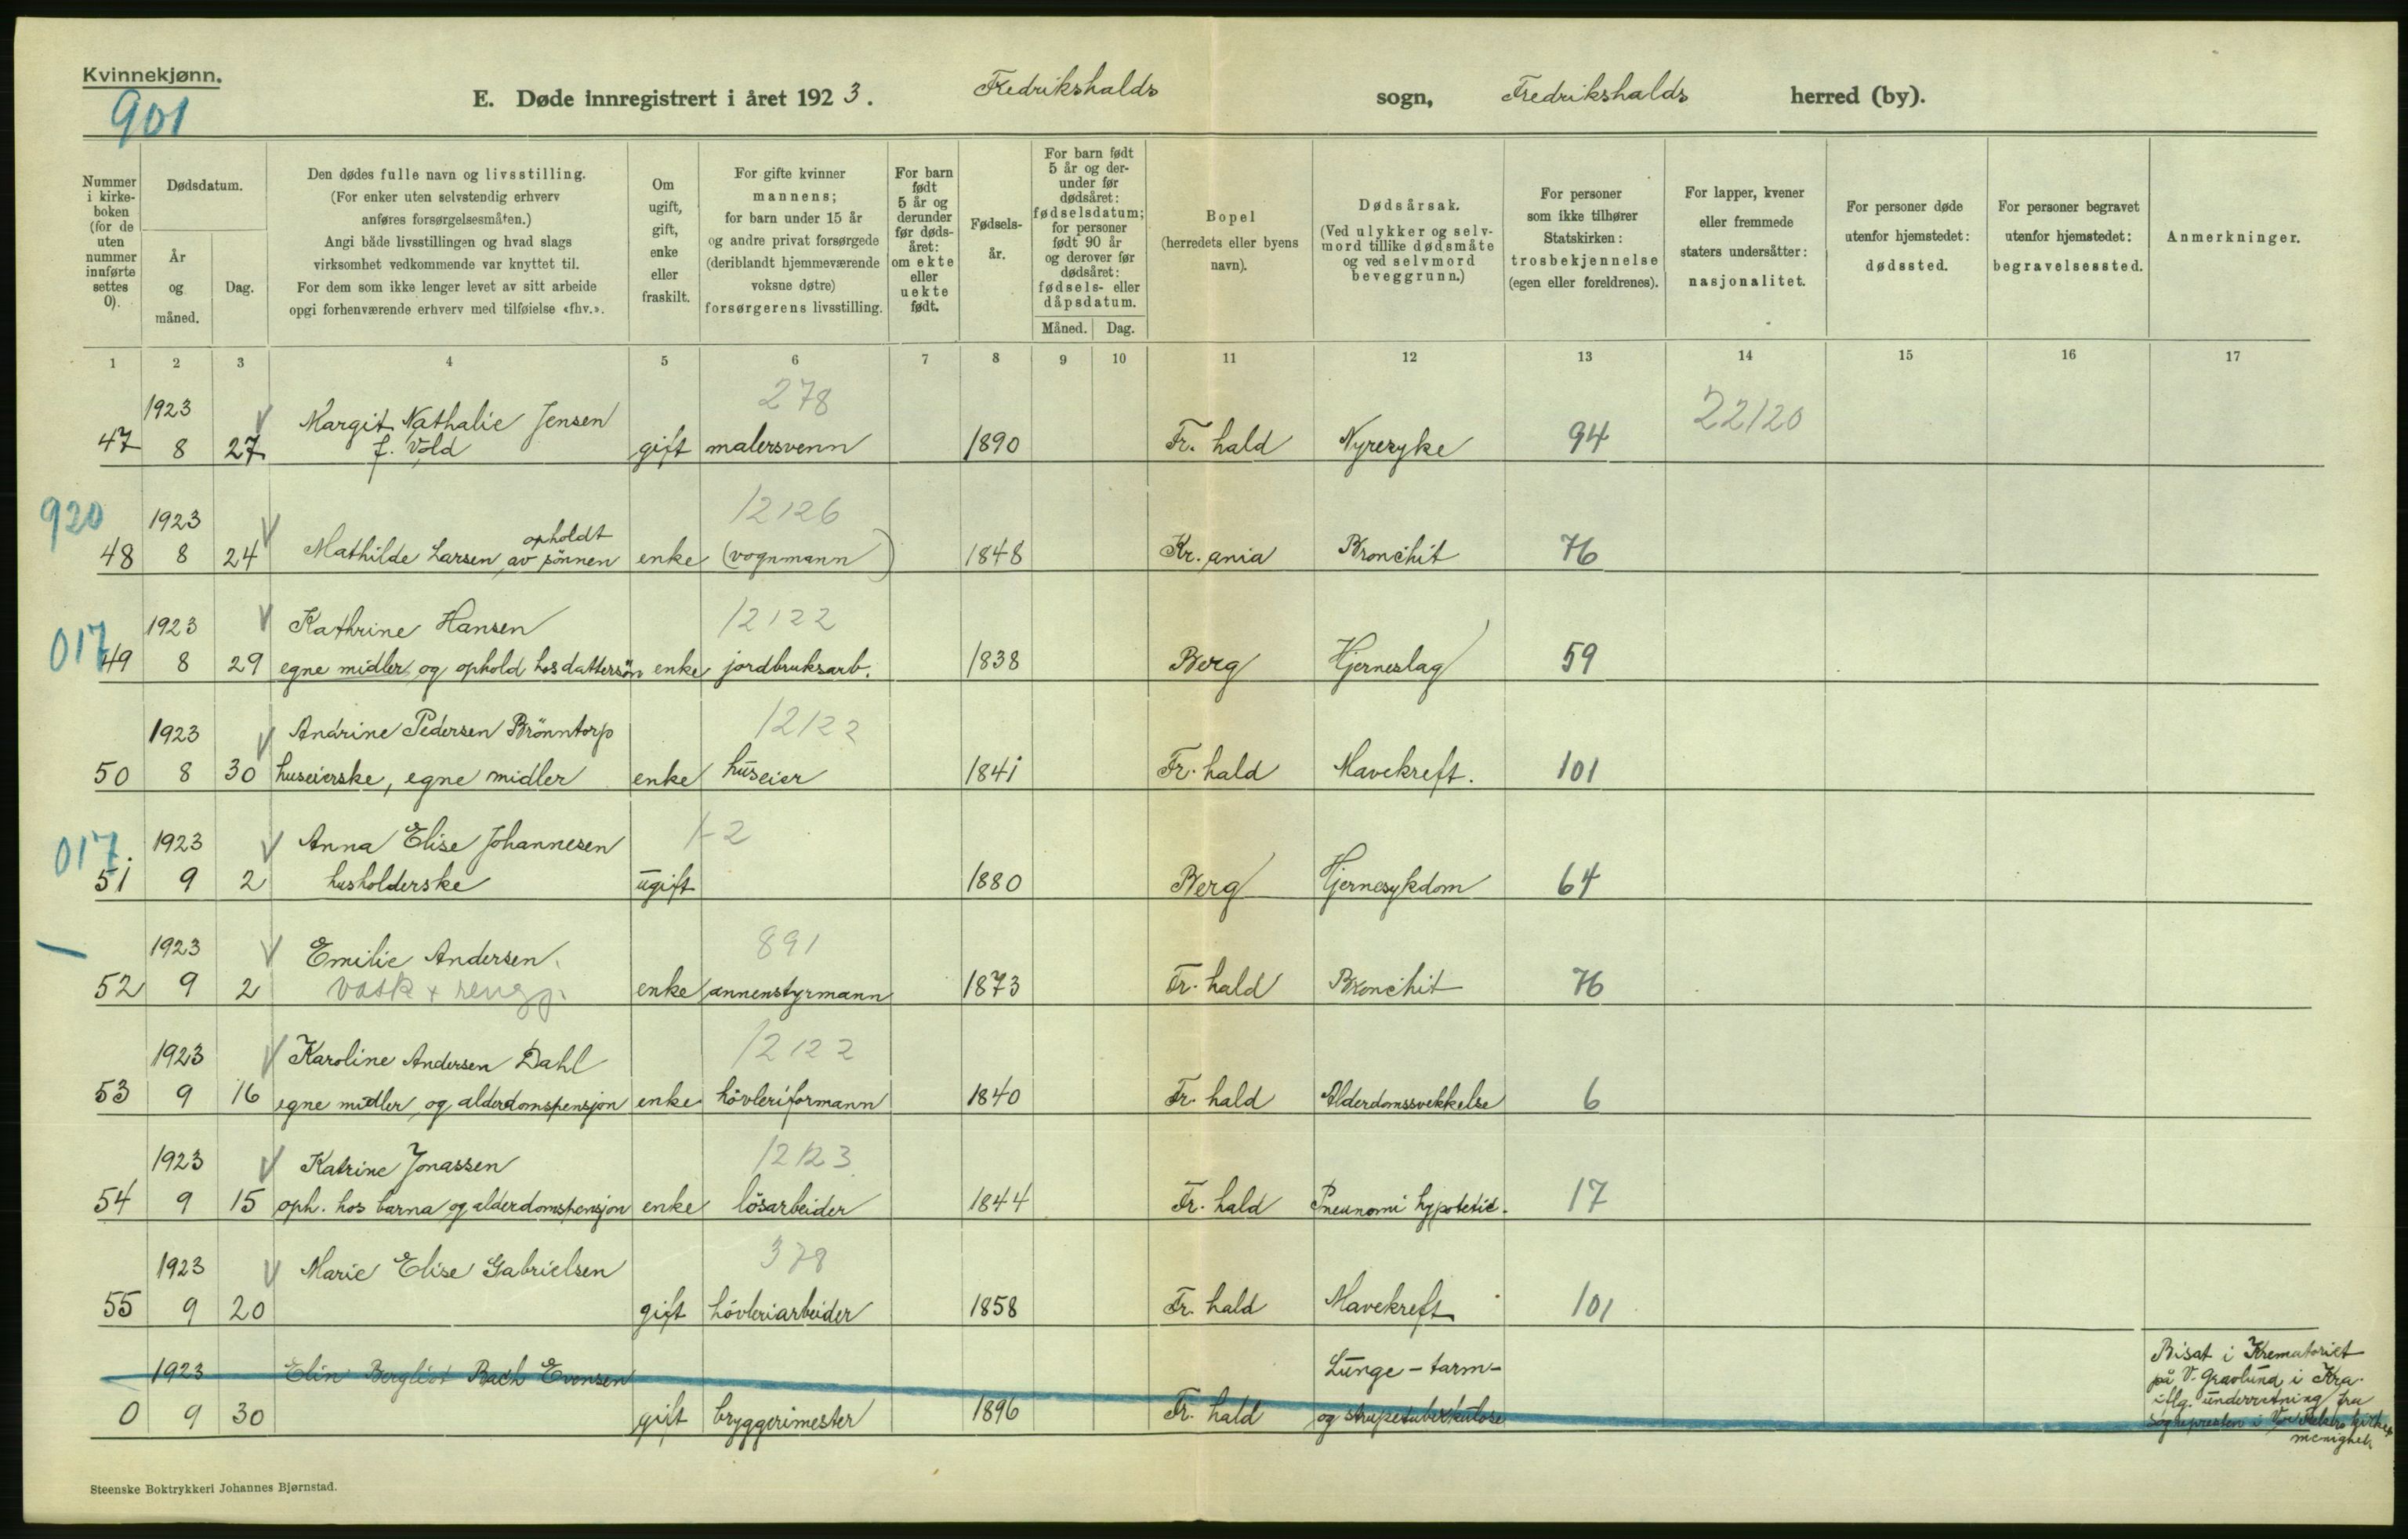 Kvinnekjønn.
901
E. Døde innregistrert i året 1923. Fredrikshalds sogn, Fredrikshalds herred (by).
Nummer i kirke-boken (for de uten nummer innførte settes 0).
Dødsdatum.
År og måned.
Dag.
Den dødes fulle navn og livsstilling.
(For enker uten selvstendig erhverv
anføres forsørgelsesmåten.)
Angi både livsstillingen og hvad slags
virksomhet vedkommende var knyttet til.
For dem som ikke lenger levet av sitt arbeide
opgi forhenværende erhverv med tilføielse «fhv.».
Om ugift, gift, enke eller fraskilt.
For gifte kvinner
mannens;
for barn under 15 år
og andre privat forsørgede
(deriblandt hjemmeværende
voksne døtre)
forsørgerens livsstilling.
For barn født 5 år og derunder før døds-året: om ekte eller uekte født.
Fødsels-år.
For barn født 5 år og der-under før dødsåret: fødselsdatum; for personer født 90 år og derover før dødsåret: fødsels- eller dåpsdatum.
Måned. Dag.
Bopel
(herredets eller byens
navn).
Dødsårsak.
(Ved ulykker og selv-
mord tillike dødsmåte
og ved selvmord
beveggrunn.)
For personer
som ikke tilhører
Statskirken:
trosbekjennelse
(egen eller foreldrenes).
For lapper, kvener
eller fremmede
staters undersåtter:
nasjonalitet.
For personer døde
utenfor hjemstedet:
dødssted.
For personer begravet
utenfor hjemstedet:
begravelsessted.
Anmerkninger.
1 2 3 4 5 6 7 8 9 10 11 12 13 14 15 16 17
1923 Margit Nathalie Jensen 278 22120
47 8 27 f. Vold gift malersvenn 1890 Fr. hald Nyresyke 94
920 1923 opholdt 12126
48 8 24 Mathilde Larsen av sönnen enke (vognmann) 1848 Kr. ania Bronchit 76
017 1923 Kathrine Hansen 12122
49 8 29 egne midler og ophold hos dattersön enke jordbruksarb. 1838 Berg Hjerneslag 59
1923 Andrine Pedersen Brönntorp 12122
50 8 30 huseierske, egne midler enke huseier 1841 Fr. hald Mavekreft. 101
017 1923 Anna Elise Johannesen 1-2
51 9 2 husholderske ugift 1880 Berg Hjernesykdom 64
1923 Emilie Andersen 891
52 9 2 vask + rengj. enke annenstyrmann 1873 Fr. hald Bronchit 76
1923 Karoline Andersen Dahl 12122
53 9 16 egne midler og alderdomspensjon enke hövleriformann 1840 Fr. hald Alderdomssvekkelse 6
1923 Katrine Jonassen 12123
54 9 15 oph. hos barna og alderdomspensjon enke lösarbeider 1844 Fr. hald Pneunomi hypotetic. 17
1923 Marie Elise Gabrielsen 378
55 9 20 gift hövleriarbeider 1858 Fr. hald Mavekreft 101
1923 Elin Bergliot Bach Evensen Lunge - tarm-
0 9 30 gift bryggerimester 1896 Fr. hald og strupetuberkulose
Bisat i Krematoriet
på V. Gravlund i Kra.
iflg. underretning fra
sognepresten i Vor Frelsers kirkes
menighet
Steenske Boktrykkeri Johannes Bjørnstad.